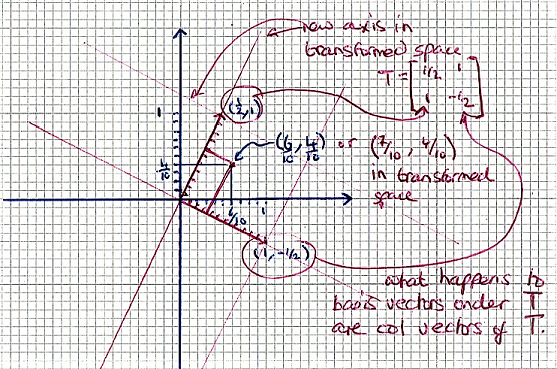 new axis in
transformed space
T = [1/2 1
1 -1/2]
1
(1/2, 1)
(6/10, 4/10) or (7/10, 4/10)
in transformed
space
4/10
6/10
1
(1, -1/2)
what happens to
basis vectors under T
are col vectors of T.